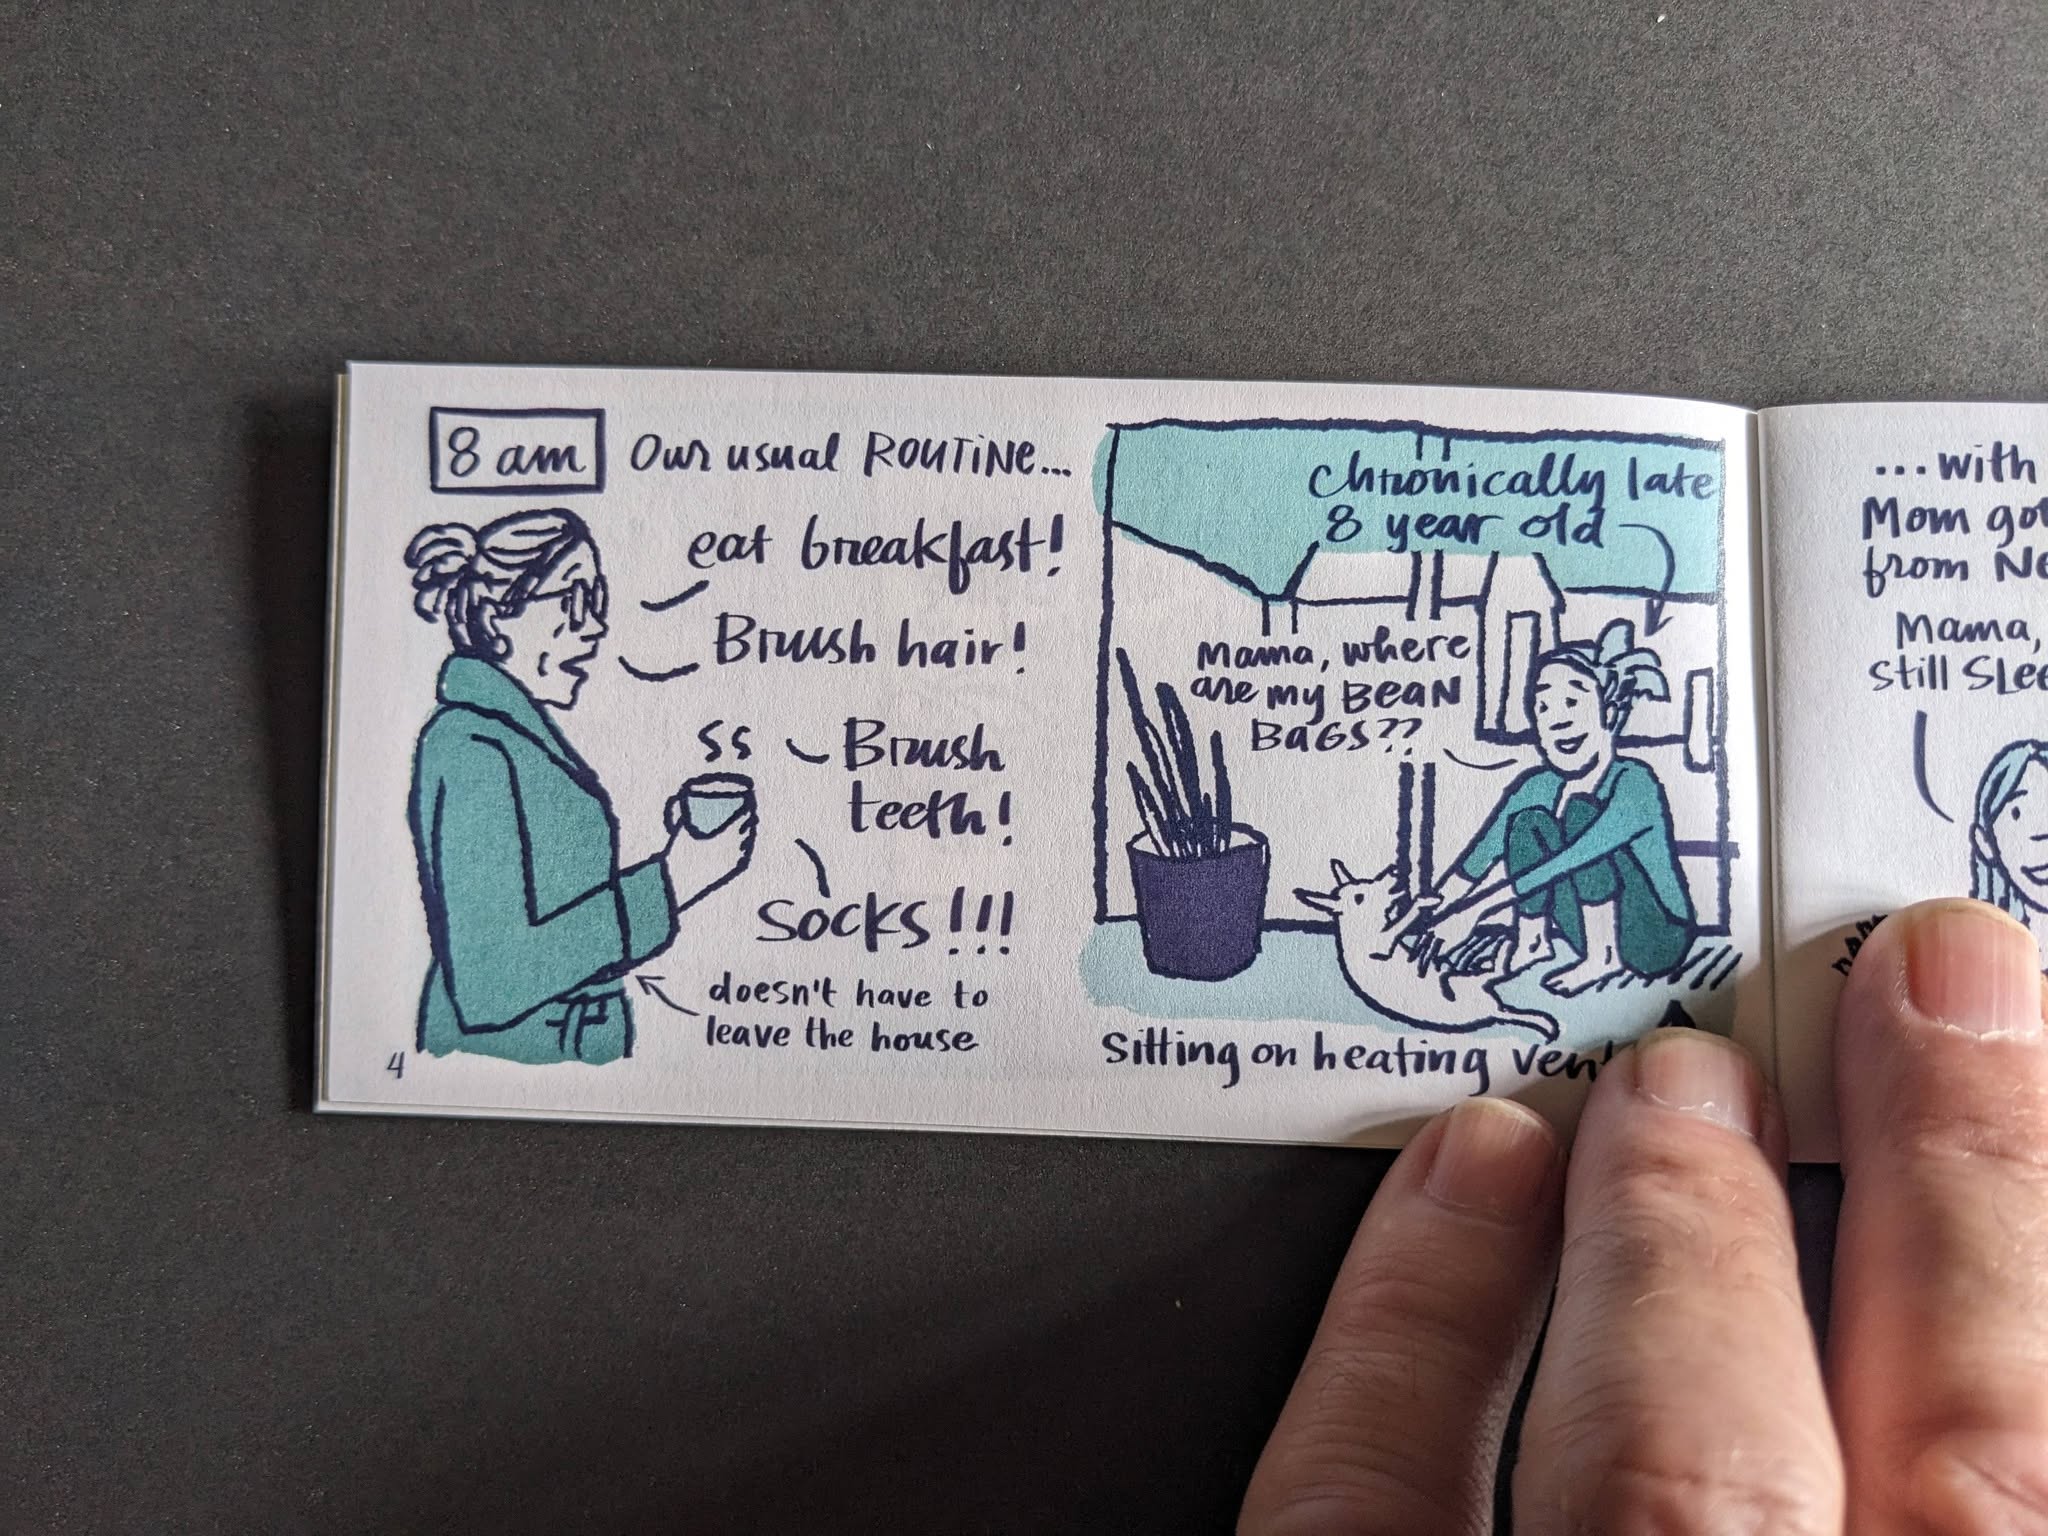 8 am
Our usual ROUTINE...
eat breakfast!
Brush hair!
Brush
teeth!
SOCKS!!!
doesn't have to
leave the house
4
chronically late
8 year old
Mama, where
are my BEAN
BAGS??
sitting on heating
...with
Mom
from
Mama,
still